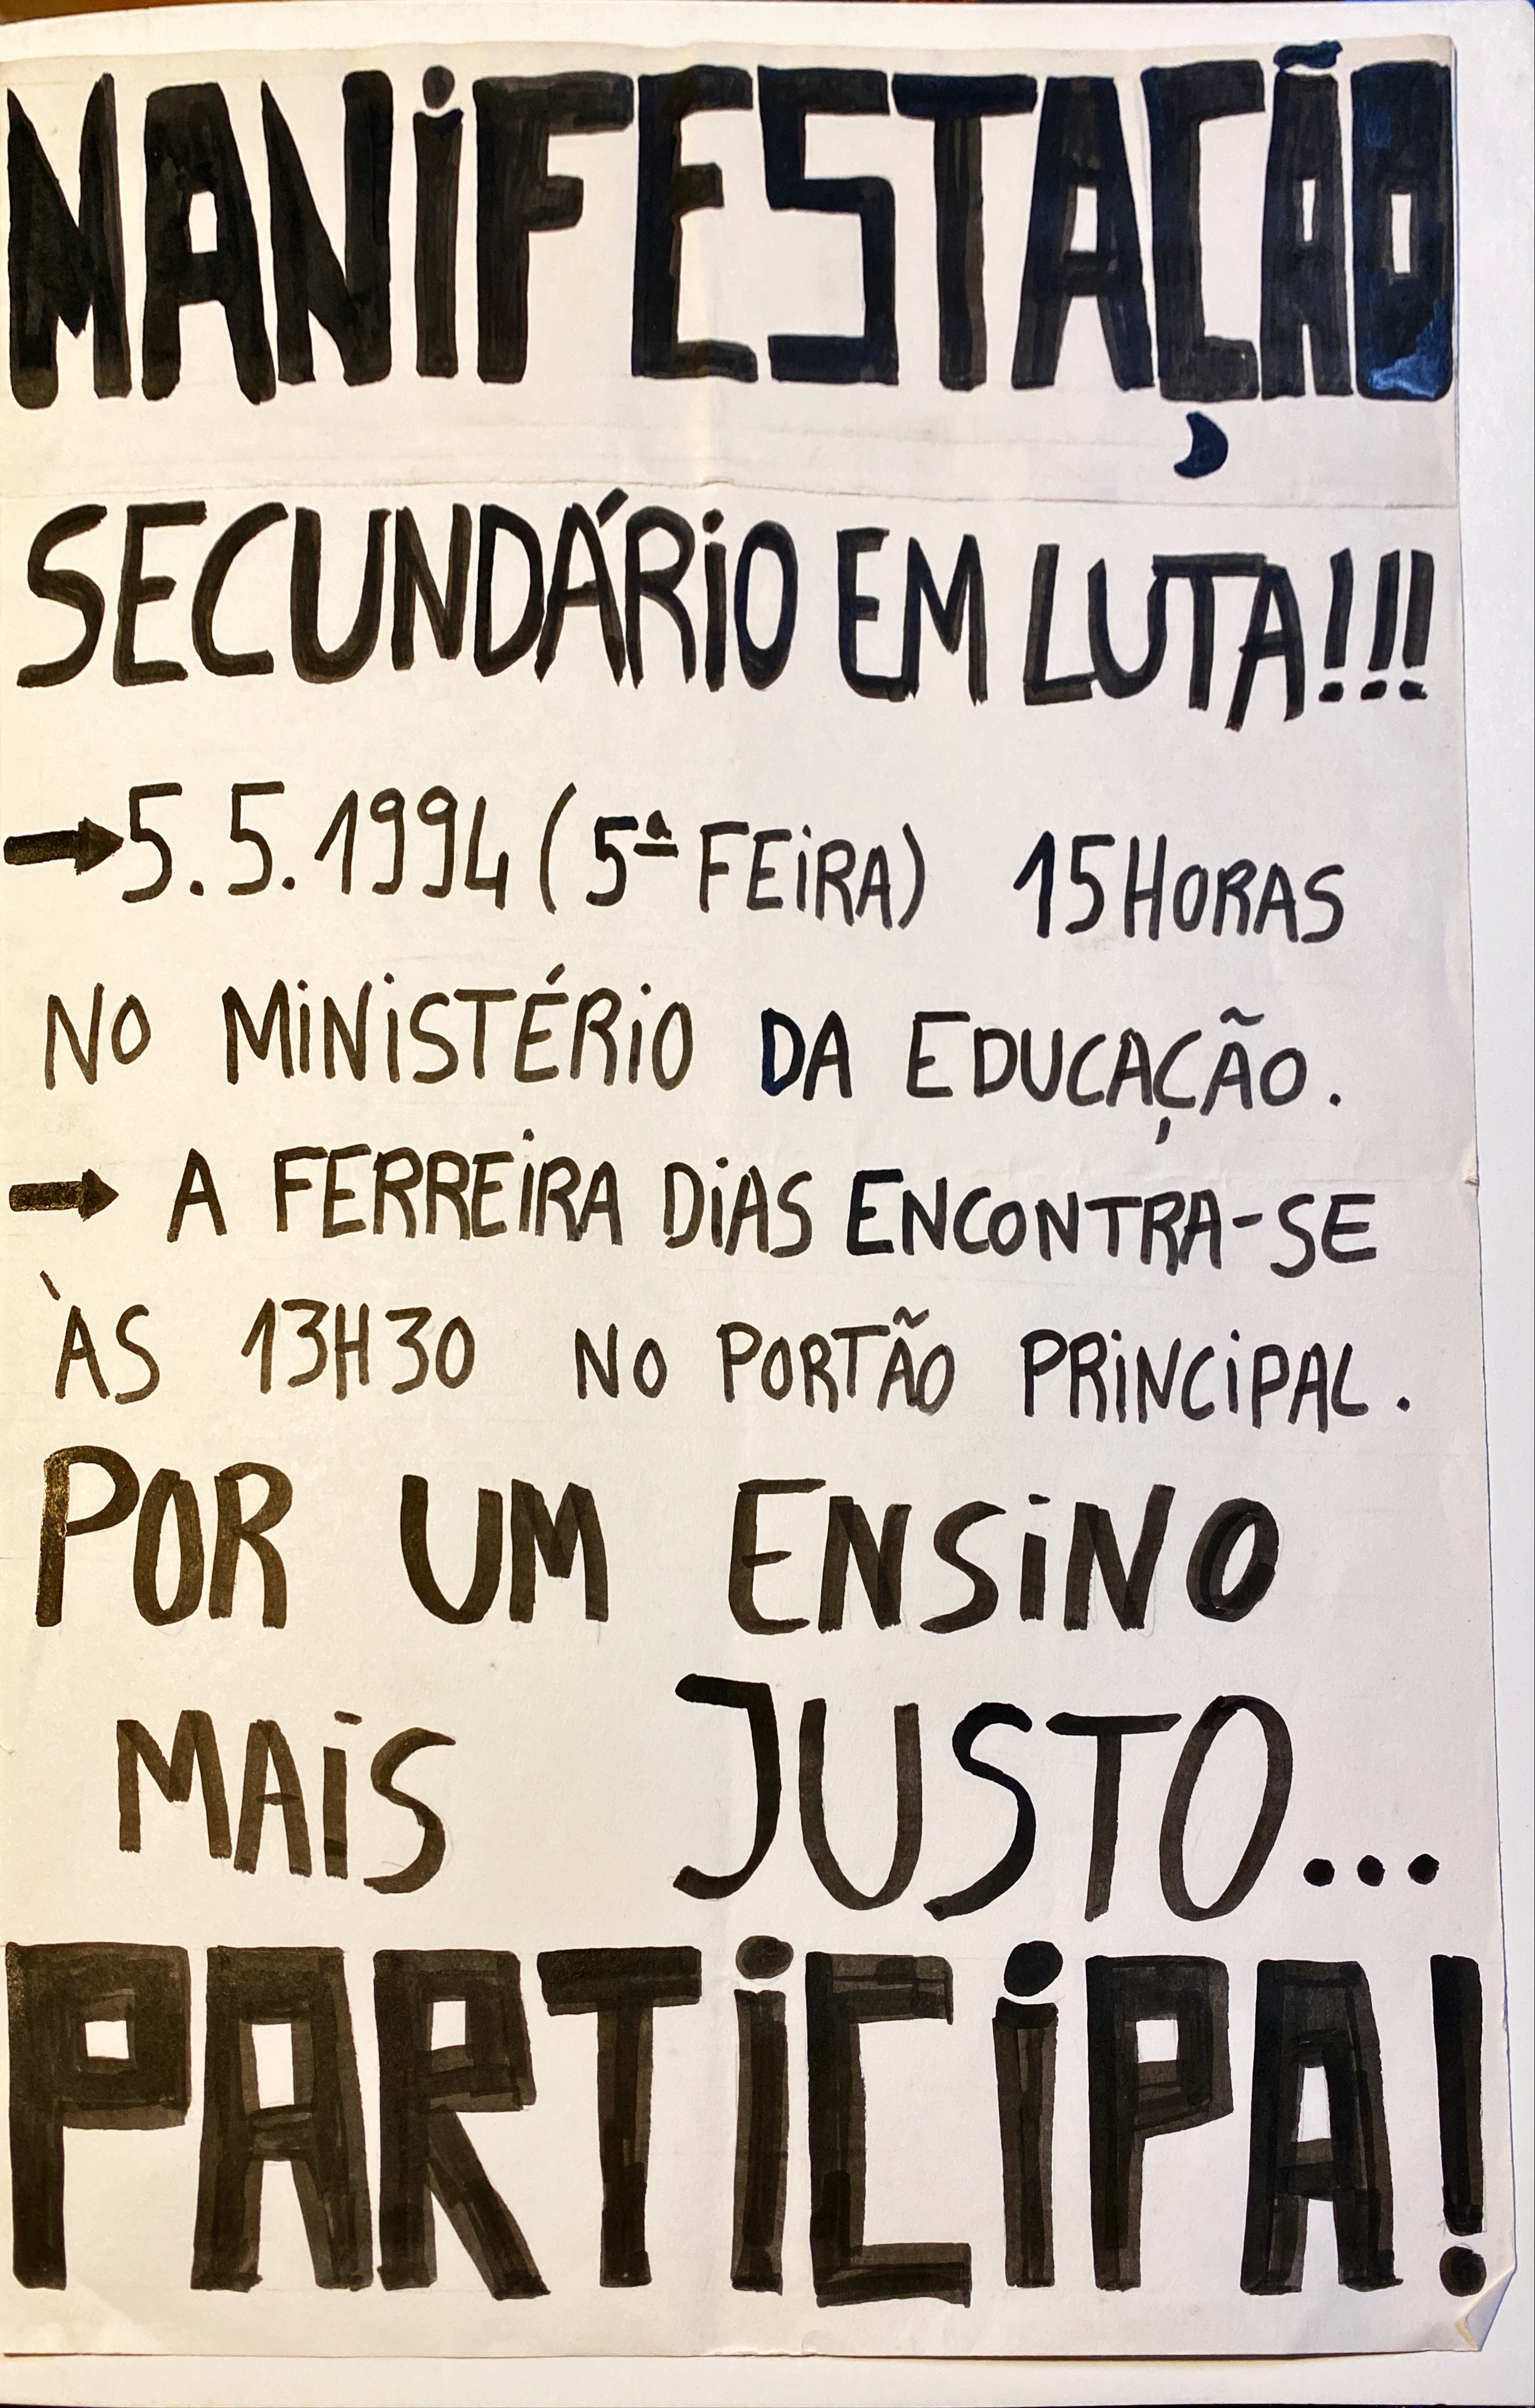 MANiFESTAÇÃO
SECUNDÁRiO EM LUTA!!!
→5.5.1994 (5ª FEiRA) 15HORAS
NO MiNiSTÉRiO DA EDUCAÇÃO.
→ A FERREiRA DiAS ENCONTRA-SE
ÀS 13H30 NO PORTÃO PRiNCiPAL.
POR UM ENSiNO
MAiS JUSTO...
PARTiCiPA!